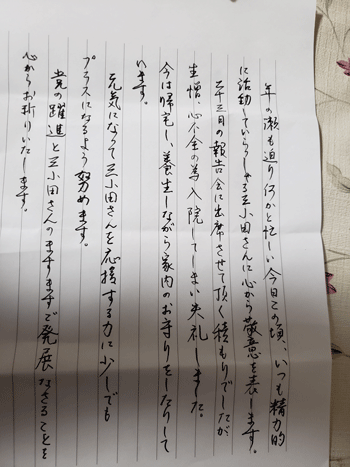 年の瀬も迫り何かと忙しい今日この頃、いつも精力的
に活動していらっしゃる三小田さんに心から敬意を表します。
二十三日の報告会に出席させて頂く積もりでしたが
生憎、心不全の為入院してしまい失礼しました。
今は帰宅し、養生しながら家内のお守りをしたりして
います。
元気になって三小田さんを応援する力に少しでも
プラスになるよう努めます。
党の躍進と三小田さんのますますご発展なさることを
心からお祈りいたします。